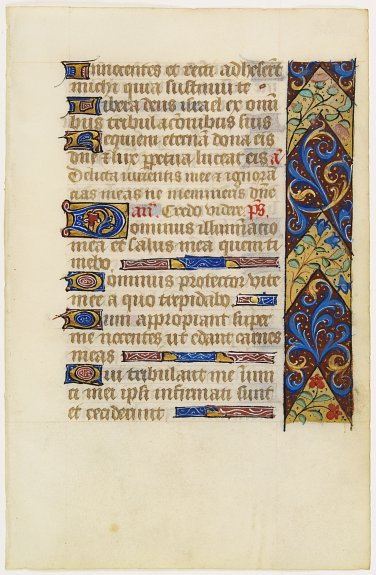 Innocentes et recti adheserūt
michi quia sustinui te
Libera deus israel ex omī
bus tribulacionibus suis
Requiem eternā dona eis
dn̄e et lux ꝑpetua luceat eis a͞
Delicta iuventutis mee et ignorā
cias meas ne memineris dn̄e
an͞. Credo videre p͞s
Dominus illuminatio
mea et salus mea quem ti
mebo
Dominus protector vite
mee a quo trepidabo
Dum appropiant super
me nocentes ut edant carnes
meas
Qui tribulant me inimi
ci mei ipsi infirmati sunt
et ceciderunt